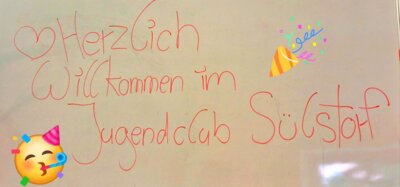 Herzlich
Willkommen im
Jugendclub Sülstorf